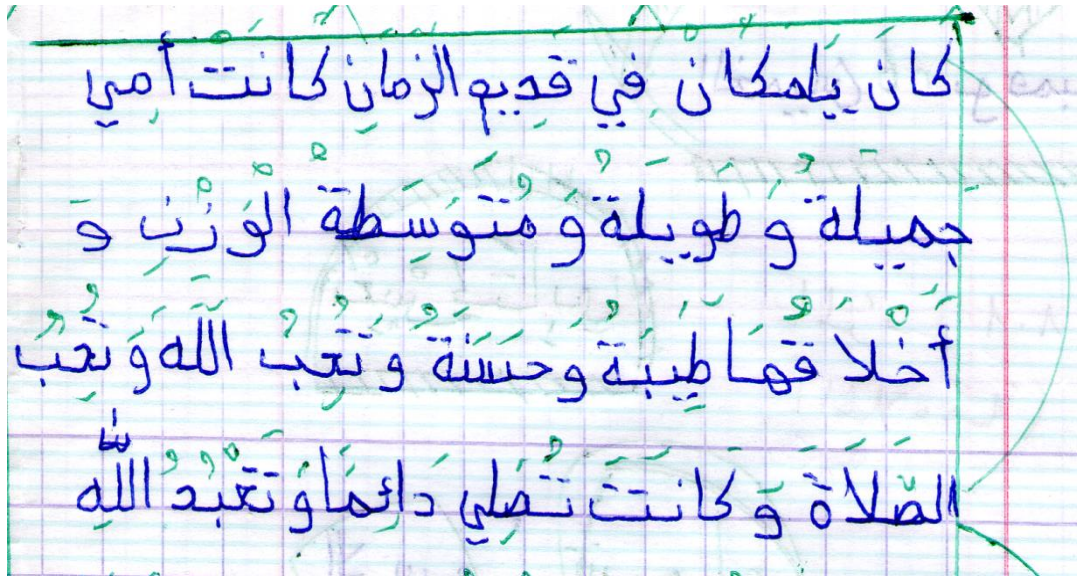 كانَ يَامكَانْ فِي قَدِيمِ الزمَانِ كَانَتْ أُمِي
جَمِيلَةٌ وَ طَوِيلَةٌ وَ مُتَوَسِطَةْ الْوَزْنِ وَ
أَخْلَا قُهَا طَيِبَةٌ وَحَسَنَةٌ وَتُحِبُ اللَّهَ وَتُحِبُ
الصَّلَاةَ وَ كَانَتَ تُصَلِي دَائِمَا وَتَعْبُدُ اللَّهِ